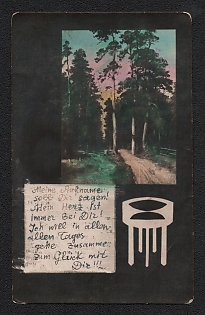 Meine Aufname
soll Dir sagen!
Mein Herz ist
immer Bei Dir!
Ich will in allen
allen Tages
gehe zusamme
zum Glück mit
Dir!!!